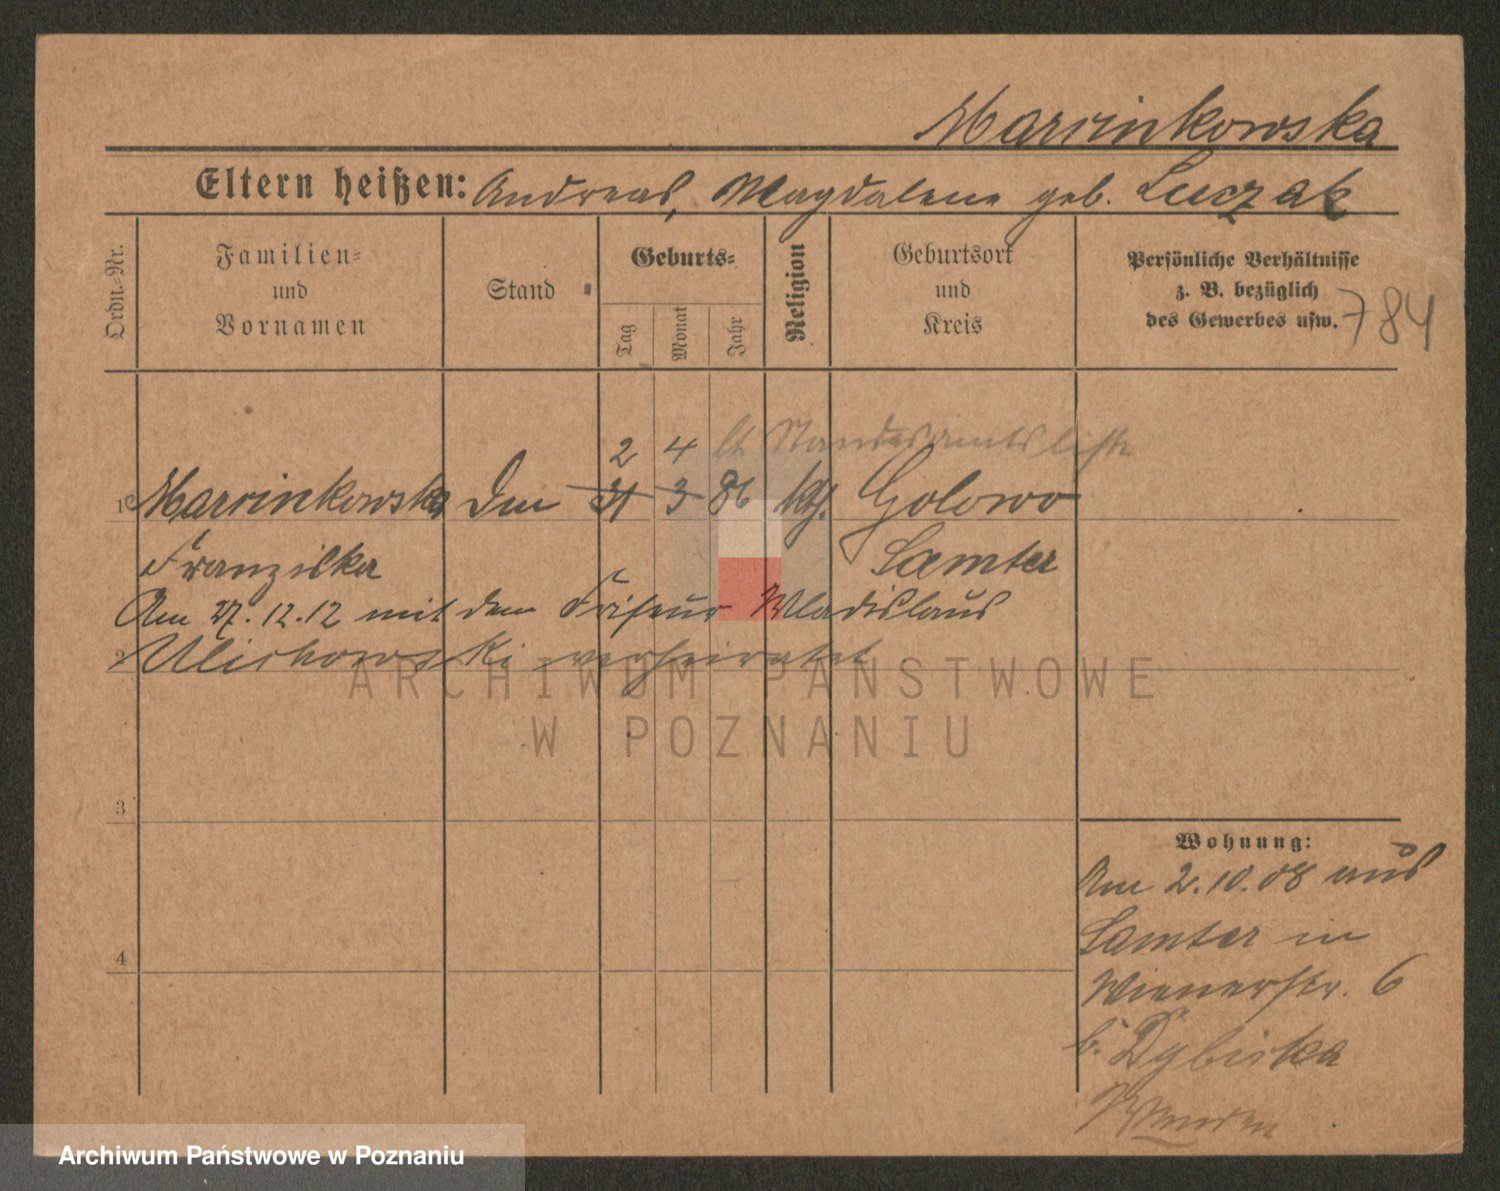 Marcinkowska
Eltern heißen: Andreas, Magdalene geb. Luczak
Ordn.-Nr.
Familien-
und
Vornamen
Stand
Geburts-
Tag
Monat
Jahr
Religion
Geburtsort
und
Kreis
Persönliche Verhältnisse
z. B. bezüglich
des Gewerbes usw.
784
2 4 lt Standesamtsliste
1 Marcinkowska 31 3 86 kth. Golowo
Franziska Samter
Am 27.12.12 mit dem Friseur Wladislaus
2 verheiratet
3
4
Wohnung:
Am 2.10.08 aus
Samter in
Wienerstr. 6
b. Dybiska
ARCHIWUM PAŃSTWOWE
W POZNANIU
Archiwum Państwowe w Poznaniu